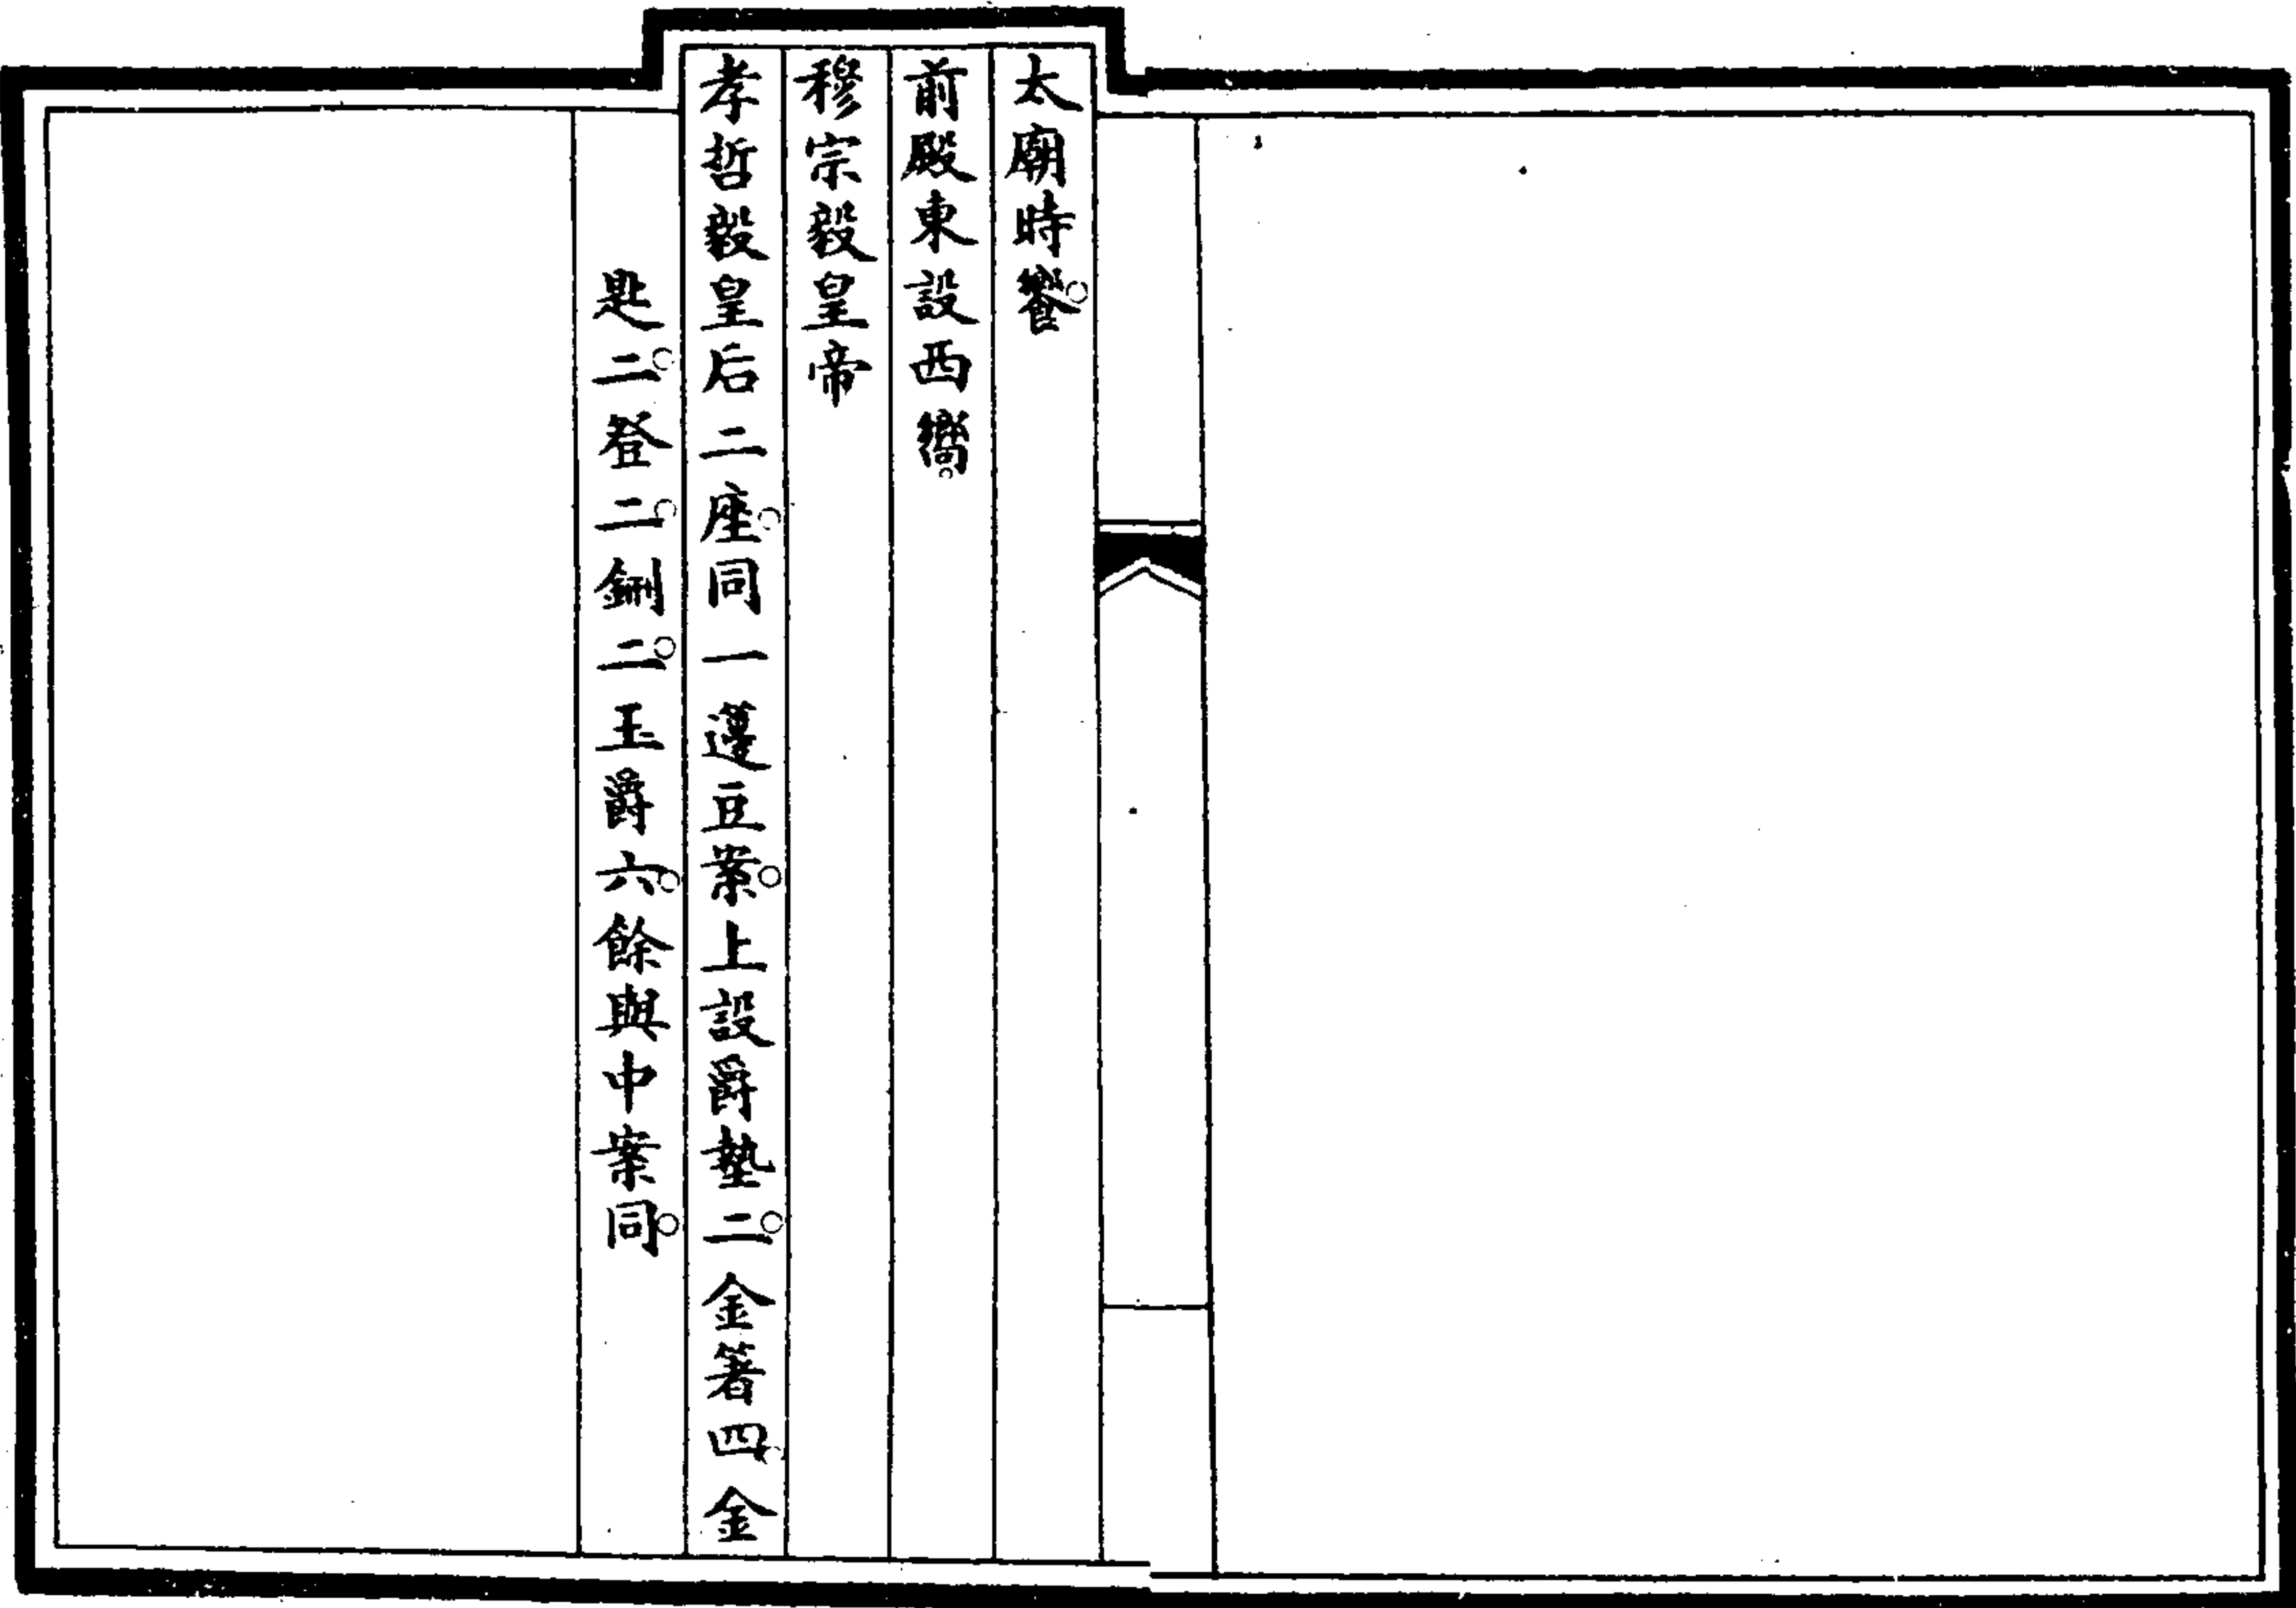 太廟時饗。
前殿東設西嚮。
穆宗毅皇帝
孝哲毅皇后二座。同一籩豆案。上設爵墊二。金箸四。金
匙二。登二。鉶二。玉爵六。餘與中案同。